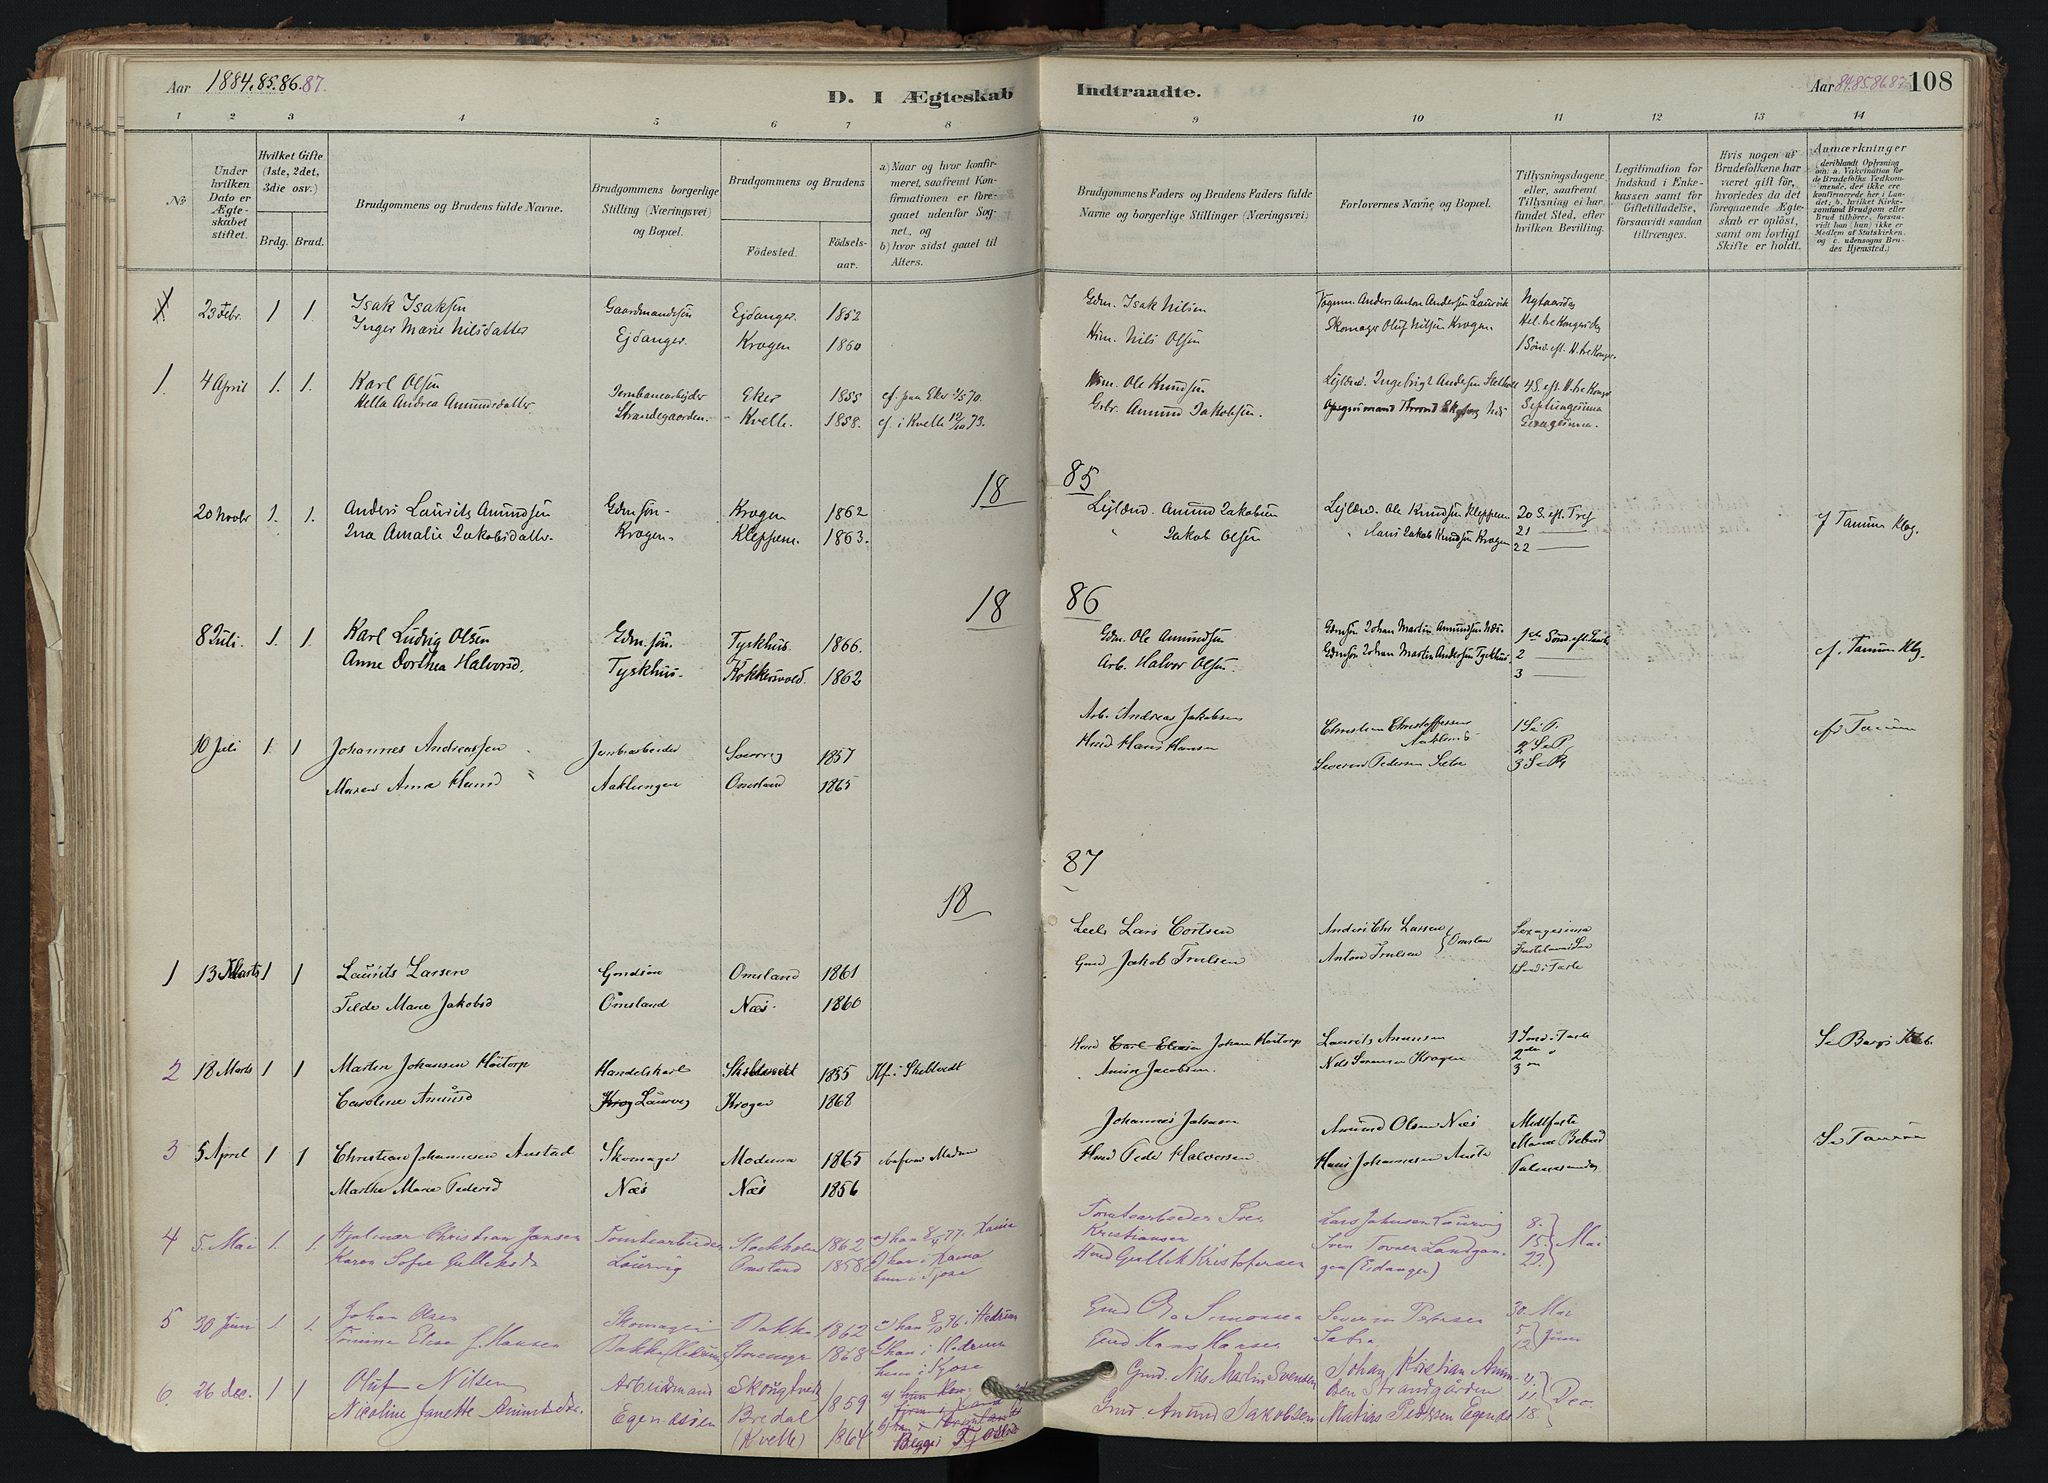 Aar 1884.85.86.87.
D. I Ægteskab
Indtraadte.
Aar 84.85.86.87. 108
1 2 3 4 5 6 7 8 9 10 11 12 13 14
No
Under hvilken Dato er Ægteskabet stiftet.
Hvilket Gifte (1ste, 2det, 3die osv.)
Brdg. Brud.
Brudgommens og Brudens fulde Navne.
Brudgommens borgerlige Stilling (Næringsvei) og Bopæl.
Brudgommens og Brudens
Födested. Födselsaar.
a) Naar og hvor konfirmeret, saafremt Konfirmationen er foregaaet udenfor Sognet, og
b) hvor sidst gaaet til Alters.
Brudgommens Faders og Brudens Faders fulde Navne og borgerlige Stillinger (Næringsvei)
Forlovernes Navne og Bopæl.
Tillysningsdagene, eller, saafremt Tillysning ei har fundet Sted, efter hvilken Bevilling.
Legitimation for Indskud i Enkekassen samt for Giftetilladelse, forsaavidt saadan tiltrænges.
Hvis nogen af Brudefolkene har været gift för, hvorledes da det foregaaende Ægteskab er oplöst, samt om lovligt Skifte er holdt.
Anmærkninger (deriblandt Oplysning om: a. Vaccination for de Brudefolks Vedkommende, der ikke ere konfirmerede her i Landet; b. hvilket Kirkesamfund Brudgom eller Brud tilhörer, forsavidt han (hun) ikke er Medlem af Statskirken, og c. udensogns Brudes Hjemsted.)
23 Febr. 1 1 Isak Isaksen Gaardmandssön Ejdanger. 1852 Gdm. Isak Nilsen Anders Anton Andersen Laurvik Nytaarsdag
Inger Marie Nilsdatter Ejdanger. Krogen 1860 Hsm. Nils Olsen Skomager Oluf Nilsen Krogen. Hel. tre Kongers Dag
1 Sönd. eft. H. tre Kong.
1. 4 April 1. 1. Karl Olsen Jernbanearbejder Eker 1855 cf. paa Eker Hsm. Ole Knudsen Lejlænd. Ingebrigt Andersen 4 S. eft. H. tre Kong.
Hella Andrea Amundsdatter Strandegaarden. Kvelle. 1858. cf. i Kvelle 12/10 73. Gbr. Amund Jakobsen. Septuagesima
Sexagesima.
18 85
20 Novbr 1. 1. Anders Laurits Amundsen Gdmsön. Krogen 1862 Lejlænd. Amund Jakobsen Lejlænd. Ole Knudsen Kleppen. 20 S. eft. Tref
Ina Amalie Jakobsdatter. Krogen. Kleppen. 1863. " Jakob Olsen " Hans Jakob Knudsen Krogen 21 — cf Tanum Klg.
22 —
18 86
8 Juli. 1. 1. Karl Ludvig Olsen Gdm. sön. Tyskhus. 1866. Gdm. Ole Amundsen Gdmsön Johan Martin Amundsen Næs. 1ste Sönd. eft.
Anne Dorthea Halvorsd. Tyskhus. Kokkersvold. 1862 Arb. Halvor Olsen Gdmsön Johan Martin Andersen Tyskhus. 2 — cf. Tanum Klg.
3 —
10 Juli 1. 1 Johannes Andreassen Jernbarbeider 1857 Arb. Andreas Jakobsen Christian Christoffersen Aaklung. 1 S. e. P. cfr Tanum
Maren Anne Hansd Aaklungen Omsland 1865 Hmd Hans Hansen Severin Pedersen Sætre 2 S. e. P.
3 S. e. P.
18 87
1 13 Marts 1 1 Laurits Larsen Gmdsön Omsland 1861 Lars Cortsen Anders Chr Larsen Omsland Sexagesima
Tilde Marie Jakobsd Omsland Næs. 1860 Gmd Jakob Trulsen Anton Trulsen Fastelavns
1 Sönd i Faste
2 18 Marts 1 1 Martin Johansen Höitorp Handelskarl Skibtvedt 1855 Kf. i Skibtvedt Hmd Carl Eliasen Johan Höitorp Laurits Amunsen 1 Sönd i Faste
Caroline Amundsd Krog Laurvig Krogen 1868 Amun Jacobsen. Nils Sörensen Krogen 2den "
3 "
3 5 April 1 1 Christian Johannesen Austad Skomager Modum 1865 Johannes Johnsen Amund Olsen Næs Midfaste Se Tanum
Marthe Marie Pedersd Næs Næs 1856 Hmd Peder Halvorsen Hans Johannesen Marie Bebud
Palmesöndag
4 5. Mai 1. 1. Hjalmar Christian Jansen Tomtearbeider Stockholm 1862 a) han 8/4 77. Tomtearbeider Kristiansen Lars Johnsen Laurvig 8. 15. 22. Mai
Karen Sofie Gulliksd. Laurvig Omsland 1858 b) han i hun i Tjose Hmd Gullik Kristofersen Sven Landgangen (Eidanger)
5 30 Juni 1. 1. Johan Olsen Skomager Bakke 1862 a) han 8/10 76. Hedrum Gmd Simonsen Severin Petersen 30. Mai
Tomine Elise J. Hansen Bakke (Hedrum) Storemyr 1868 b) han i Hedrum hun i Kjose Gmd Hans Hansen Sætre 5 12 Juni
6. 26 Dec. 1 1 Oluf Nilsen Arbeidsmand Skougtvedt 1859 Gmd. Nils Martin Svendsen Johan Kristian Amundsen Strandgården 4. 11. 18. Dec.
Nicoline Janette Amundsd. Bredal (Kvelle) 1864 Begge i Gmd Amund Jakobsen Mathias Pedersen